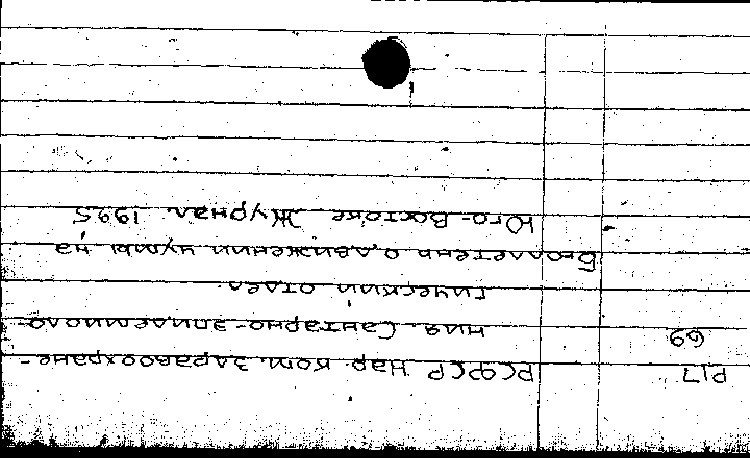 Р17 РСФСР Нар. ком. здравоохране-
69 ния. Санитарно-эпидемиоло-
гический отдел.
Бюллетень о движении чумы на
Юго-Востоке Журнал. 1925